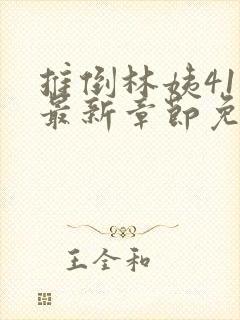 推倒林姨41
最新章节免
王全和